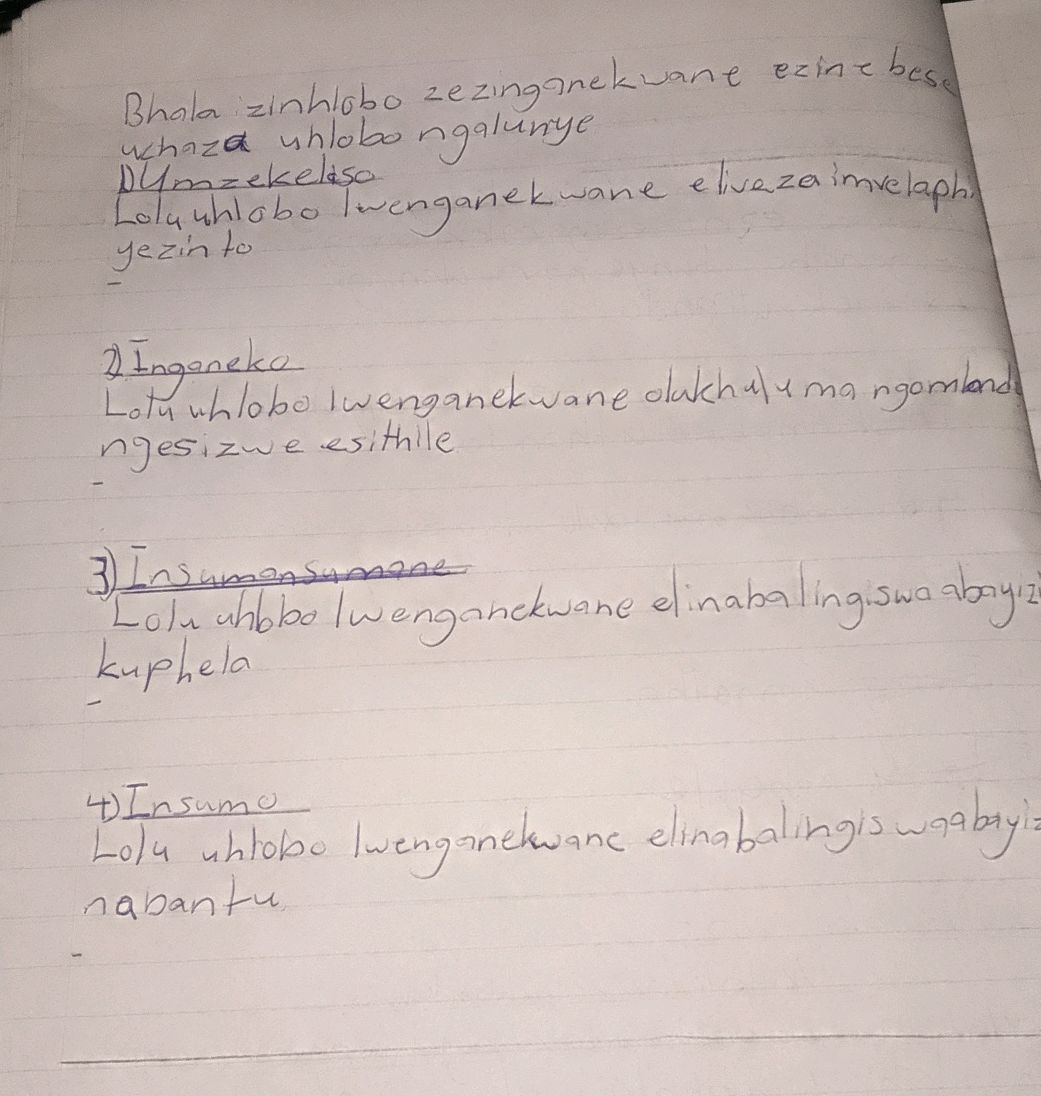 Bhala izinhlobo zezinganekwane ezine bese
uchaza uhlobo ngalunye
1) Umzekeliso
Lolu uhlobo lwenganekwane eliveza imvelaphi
yezinto
-
2) Inganeko
Lolu uhlobo lwenganekwane olukhuluma ngomland
ngesizwe esithile
-
3) Insumansumane
Lolu uhlobo lwenganekwane elinabalingiswa abayizi
kuphela
-
4) Insumo
Lolu uhlobo lwenganekwane elinabalingiswa abayiz
nabantu
-